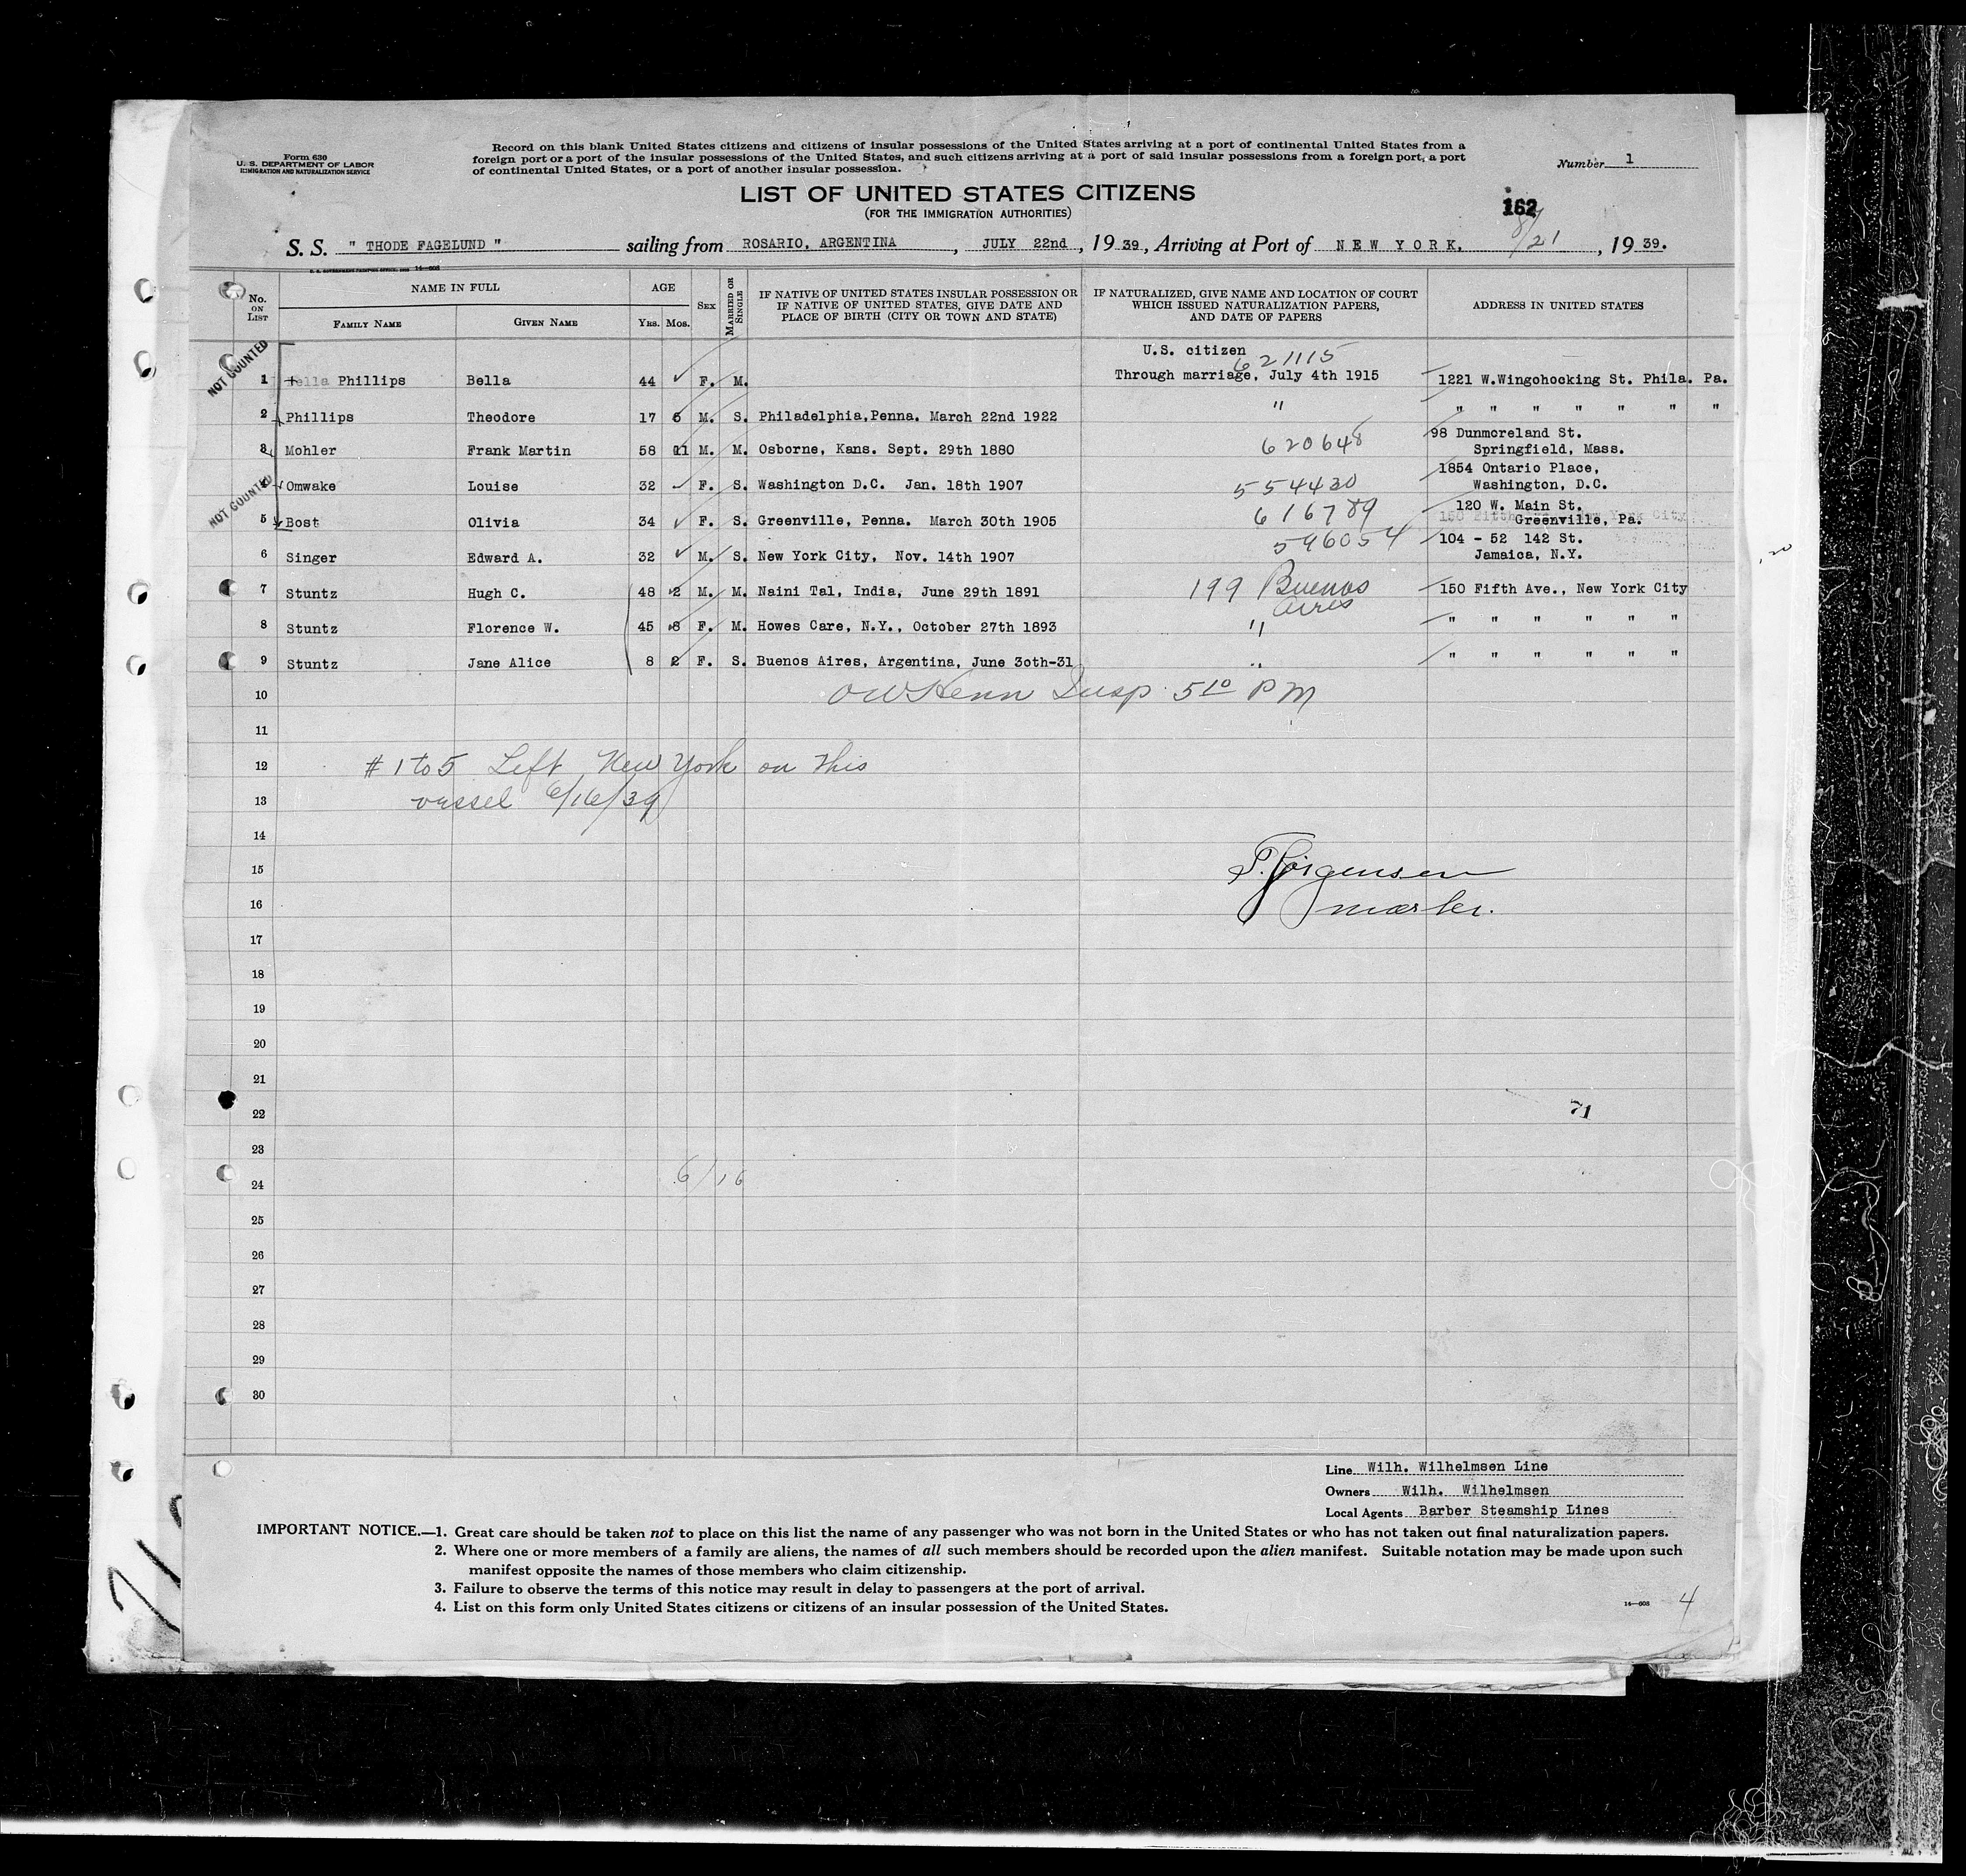 Form 630
U. S. DEPARTMENT OF LABOR
IMMIGRATION AND NATURALIZATION SERVICE
Record on this blank United States citizens and citizens of insular possessions of the United States arriving at a port of continental United States from a
foreign port or a port of the insular possessions of the United States, and such citizens arriving at a port of said insular possessions from a foreign port, a port
of continental United States, or a port of another insular possession.
Number 1
LIST OF UNITED STATES CITIZENS
(FOR THE IMMIGRATION AUTHORITIES)
162
S. S. " THODE FAGELUND " sailing from ROSARIO, ARGENTINA , JULY 22nd , 19 39 , Arriving at Port of NEW YORK. 8/21 , 19 39.
No. ON LIST
NAME IN FULL
FAMILY NAME
GIVEN NAME
AGE
YRS. MOS.
SEX
MARRIED OR SINGLE
IF NATIVE OF UNITED STATES INSULAR POSSESSION OR
IF NATIVE OF UNITED STATES, GIVE DATE AND
PLACE OF BIRTH (CITY OR TOWN AND STATE)
IF NATURALIZED, GIVE NAME AND LOCATION OF COURT
WHICH ISSUED NATURALIZATION PAPERS,
AND DATE OF PAPERS
ADDRESS IN UNITED STATES
NOT COUNTED
U.S. citizen
621115
1 Phillips Bella 44 F. M. Through marriage, July 4th 1915 1221 W.Wingohocking St. Phila. Pa.
2 Phillips Theodore 17 5 M. S. Philadelphia,Penna. March 22nd 1922 " " " " " " " "
98 Dunmoreland St.
3 Mohler Frank Martin 58 11 M. M. Osborne, Kans. Sept. 29th 1880 620648 Springfield, Mass.
1854 Ontario Place,
4 Omwake Louise 32 F. S. Washington D.C. Jan. 18th 1907 554430 Washington, D.C.
NOT COUNTED
120 W. Main St.
5 Bost Olivia 34 F. S. Greenville, Penna. March 30th 1905 616789 Greenville, Pa.
104 - 52 142 St.
6 Singer Edward A. 32 M. S. New York City, Nov. 14th 1907 596054 Jamaica, N.Y.
7 Stuntz Hugh C. 48 2 M. M. Naini Tal, India, June 29th 1891 199 Buenos Aires 150 Fifth Ave., New York City
8 Stuntz Florence W. 45 8 F. M. Howes Care, N.Y., October 27th 1893 " " " " " " "
9 Stuntz Jane Alice 8 2 F. S. Buenos Aires, Argentina, June 3oth-31 " " " " " " "
10 Insp. 5 10 PM
11
12 # 1 to 5 Left New York on this
13 vessel 6/16/39
14
15 Jörgensen
16 master.
17
18
19
20
21
22 71
23
24 6/16
25
26
27
28
29
30
Line Wilh. Wilhelmsen Line
Owners Wilh. Wilhelmsen
Local Agents Barber Steamship Lines
IMPORTANT NOTICE.—1. Great care should be taken not to place on this list the name of any passenger who was not born in the United States or who has not taken out final naturalization papers.
2. Where one or more members of a family are aliens, the names of all such members should be recorded upon the alien manifest. Suitable notation may be made upon such
manifest opposite the names of those members who claim citizenship.
3. Failure to observe the terms of this notice may result in delay to passengers at the port of arrival.
4. List on this form only United States citizens or citizens of an insular possession of the United States.
14—608
4
71